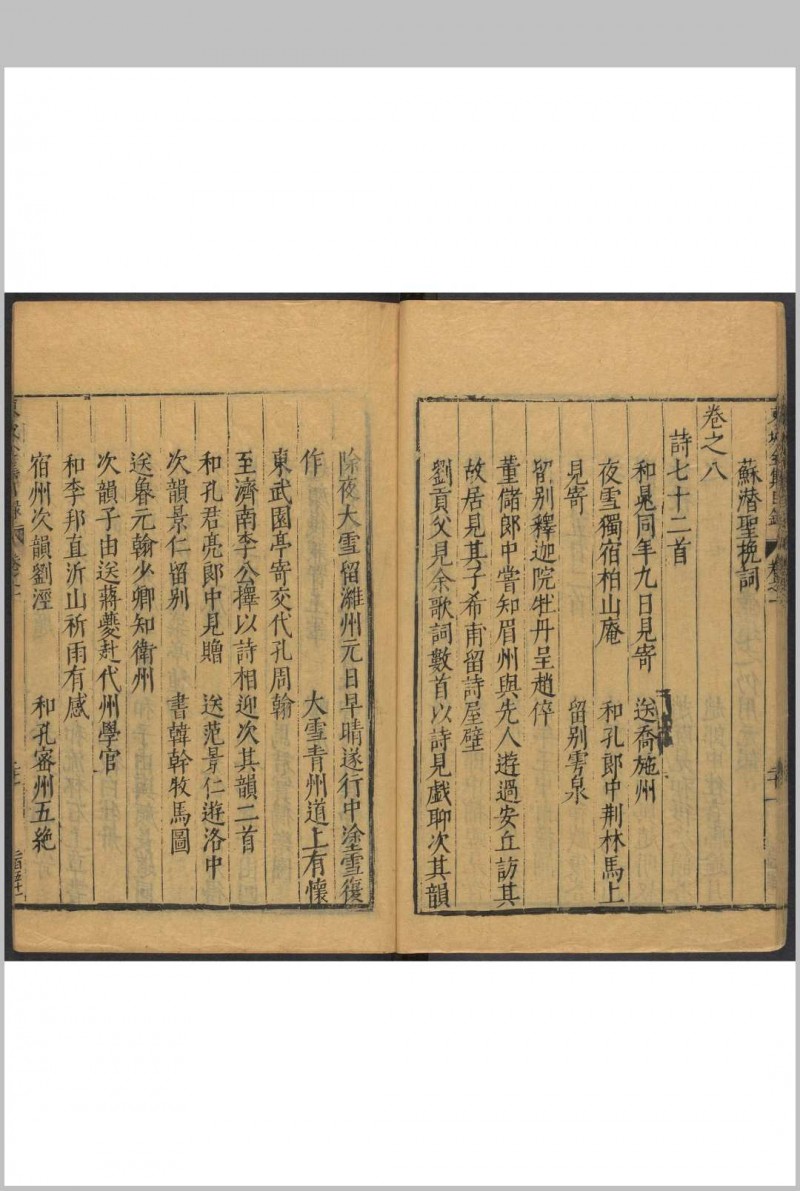 蘇潜聖挽詞
卷之八
詩七十二首
和晁同年九日見寄 送喬施州
夜雪獨宿柏山庵 和孔郎中荆林馬上
見寄 留别雩泉
留别釋迦院牡丹呈趙倅
董儲郎中嘗知眉州與先人遊過安丘訪其
故居見其子希甫留詩屋壁
劉貢父見余歌詞數首以詩見戲聊次其韻
除夜大雪留濰州元日早晴遂行中塗雪復
作 大雪青州道上有懷
東武園亭寄交代孔周翰
至濟南李公擇以詩相迎次其韻二首
和孔君亮郎中見贈 送范景仁遊洛中
次韻景仁留别 書韓幹牧馬圖
送魯元翰少卿知衛州
次韻子由送蔣夔赴代州學官
和李邦直沂山祈雨有感
宿州次韻劉涇 和孔宻州五絶